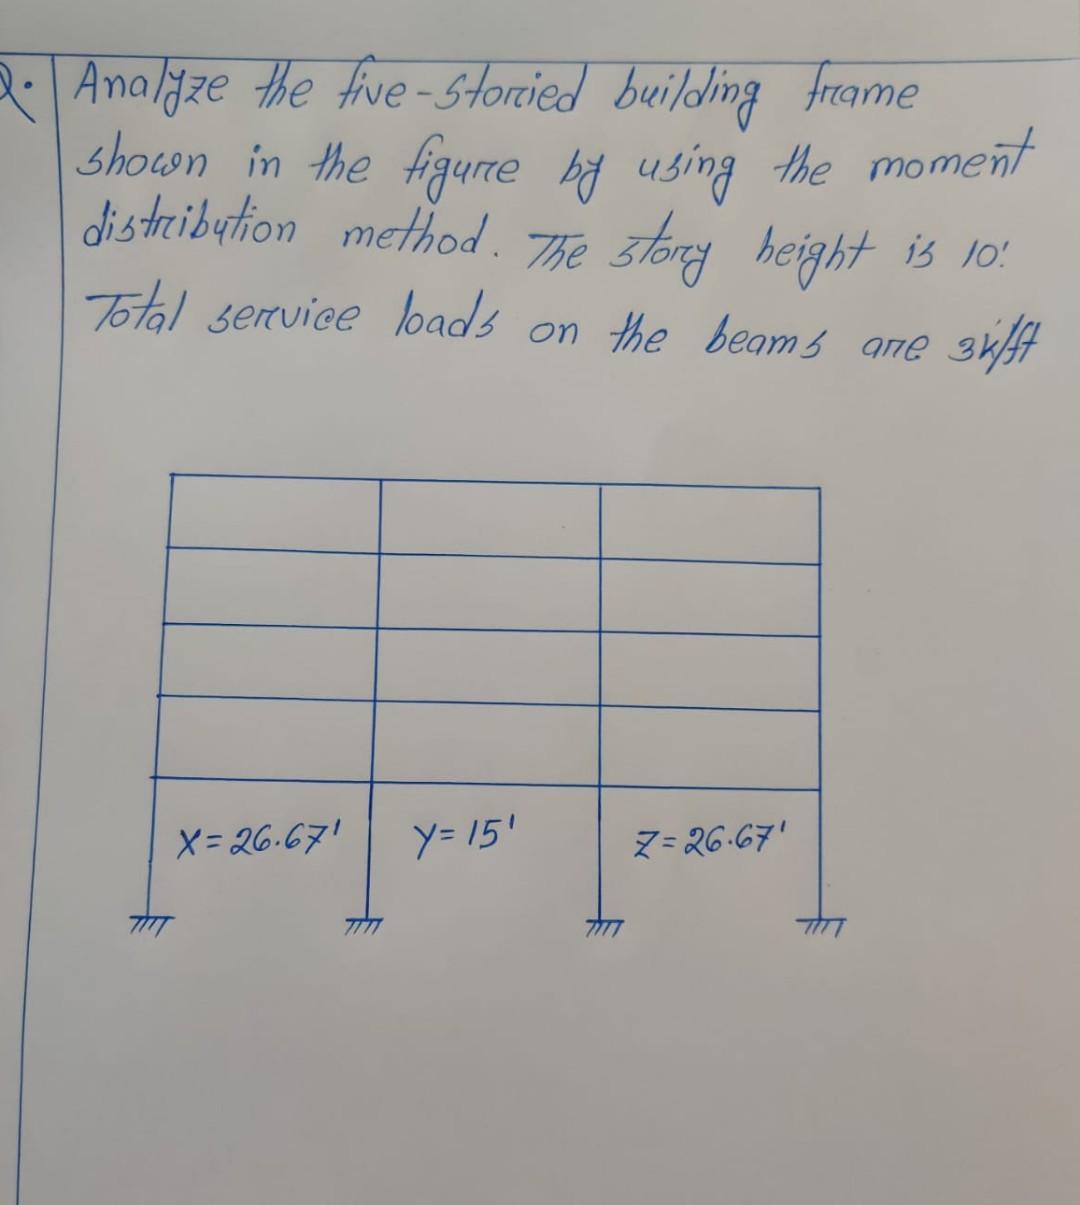 Q. Analyze the five-storied building frame
shown in the figure by using the moment
distribution method. The story height is 10'.
Total service loads on the beams are 3k/ft
X = 26.67' Y = 15' Z = 26.67'